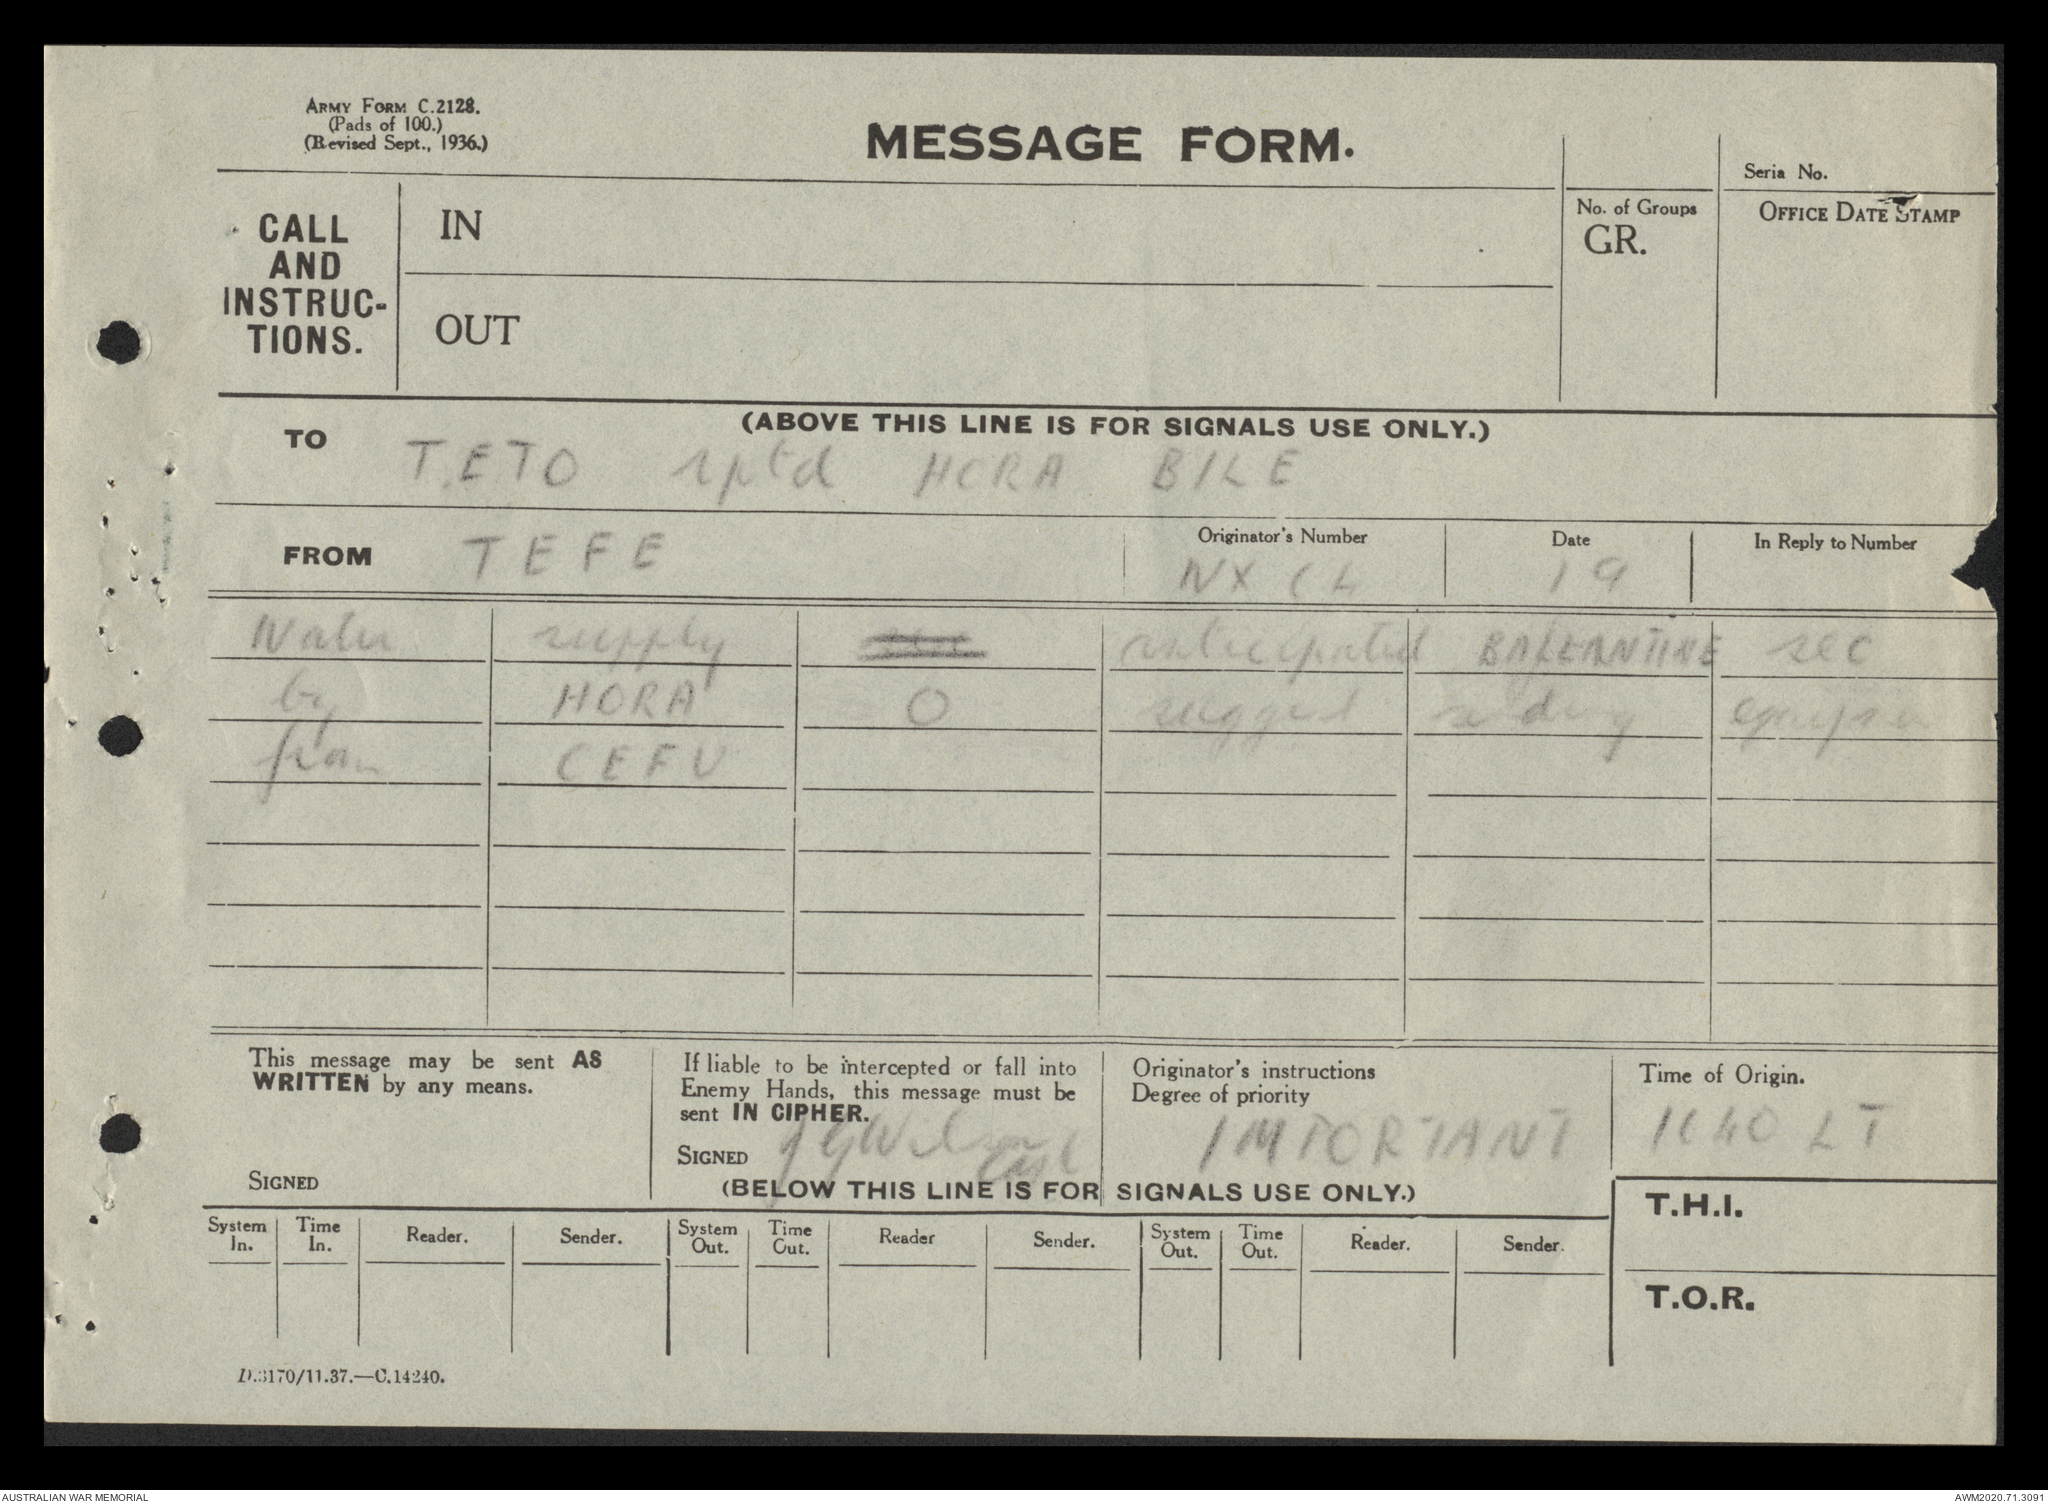 ARMY FORM C.2128.
(Pads of 100.)
(Revised Sept., 1936.)
MESSAGE FORM.
Seria No.
CALL AND INSTRUC-TIONS.
IN
No. of Groups
GR.
OFFICE DATE STAMP
OUT
(ABOVE THIS LINE IS FOR SIGNALS USE ONLY.)
TO TETO rptd HORA BILE
FROM TEFE
Originator's Number
Date 19
In Reply to Number
Water supply anticipated sec
by HORA O suggest
from CEFU
This message may be sent AS
WRITTEN by any means.
SIGNED
If liable to be intercepted or fall into
Enemy Hands, this message must be
sent IN CIPHER.
SIGNED
Originator's instructions
Degree of priority
IMPORTANT
Time of Origin.
LT
(BELOW THIS LINE IS FOR SIGNALS USE ONLY.)
T.H.I.
System In. Time In. Reader. Sender. System Out. Time Out. Reader Sender. System Out. Time Out. Reader. Sender.
T.O.R.
D.3170/11.37.—C.14240.
AUSTRALIAN WAR MEMORIAL
AWM2020.71.3091